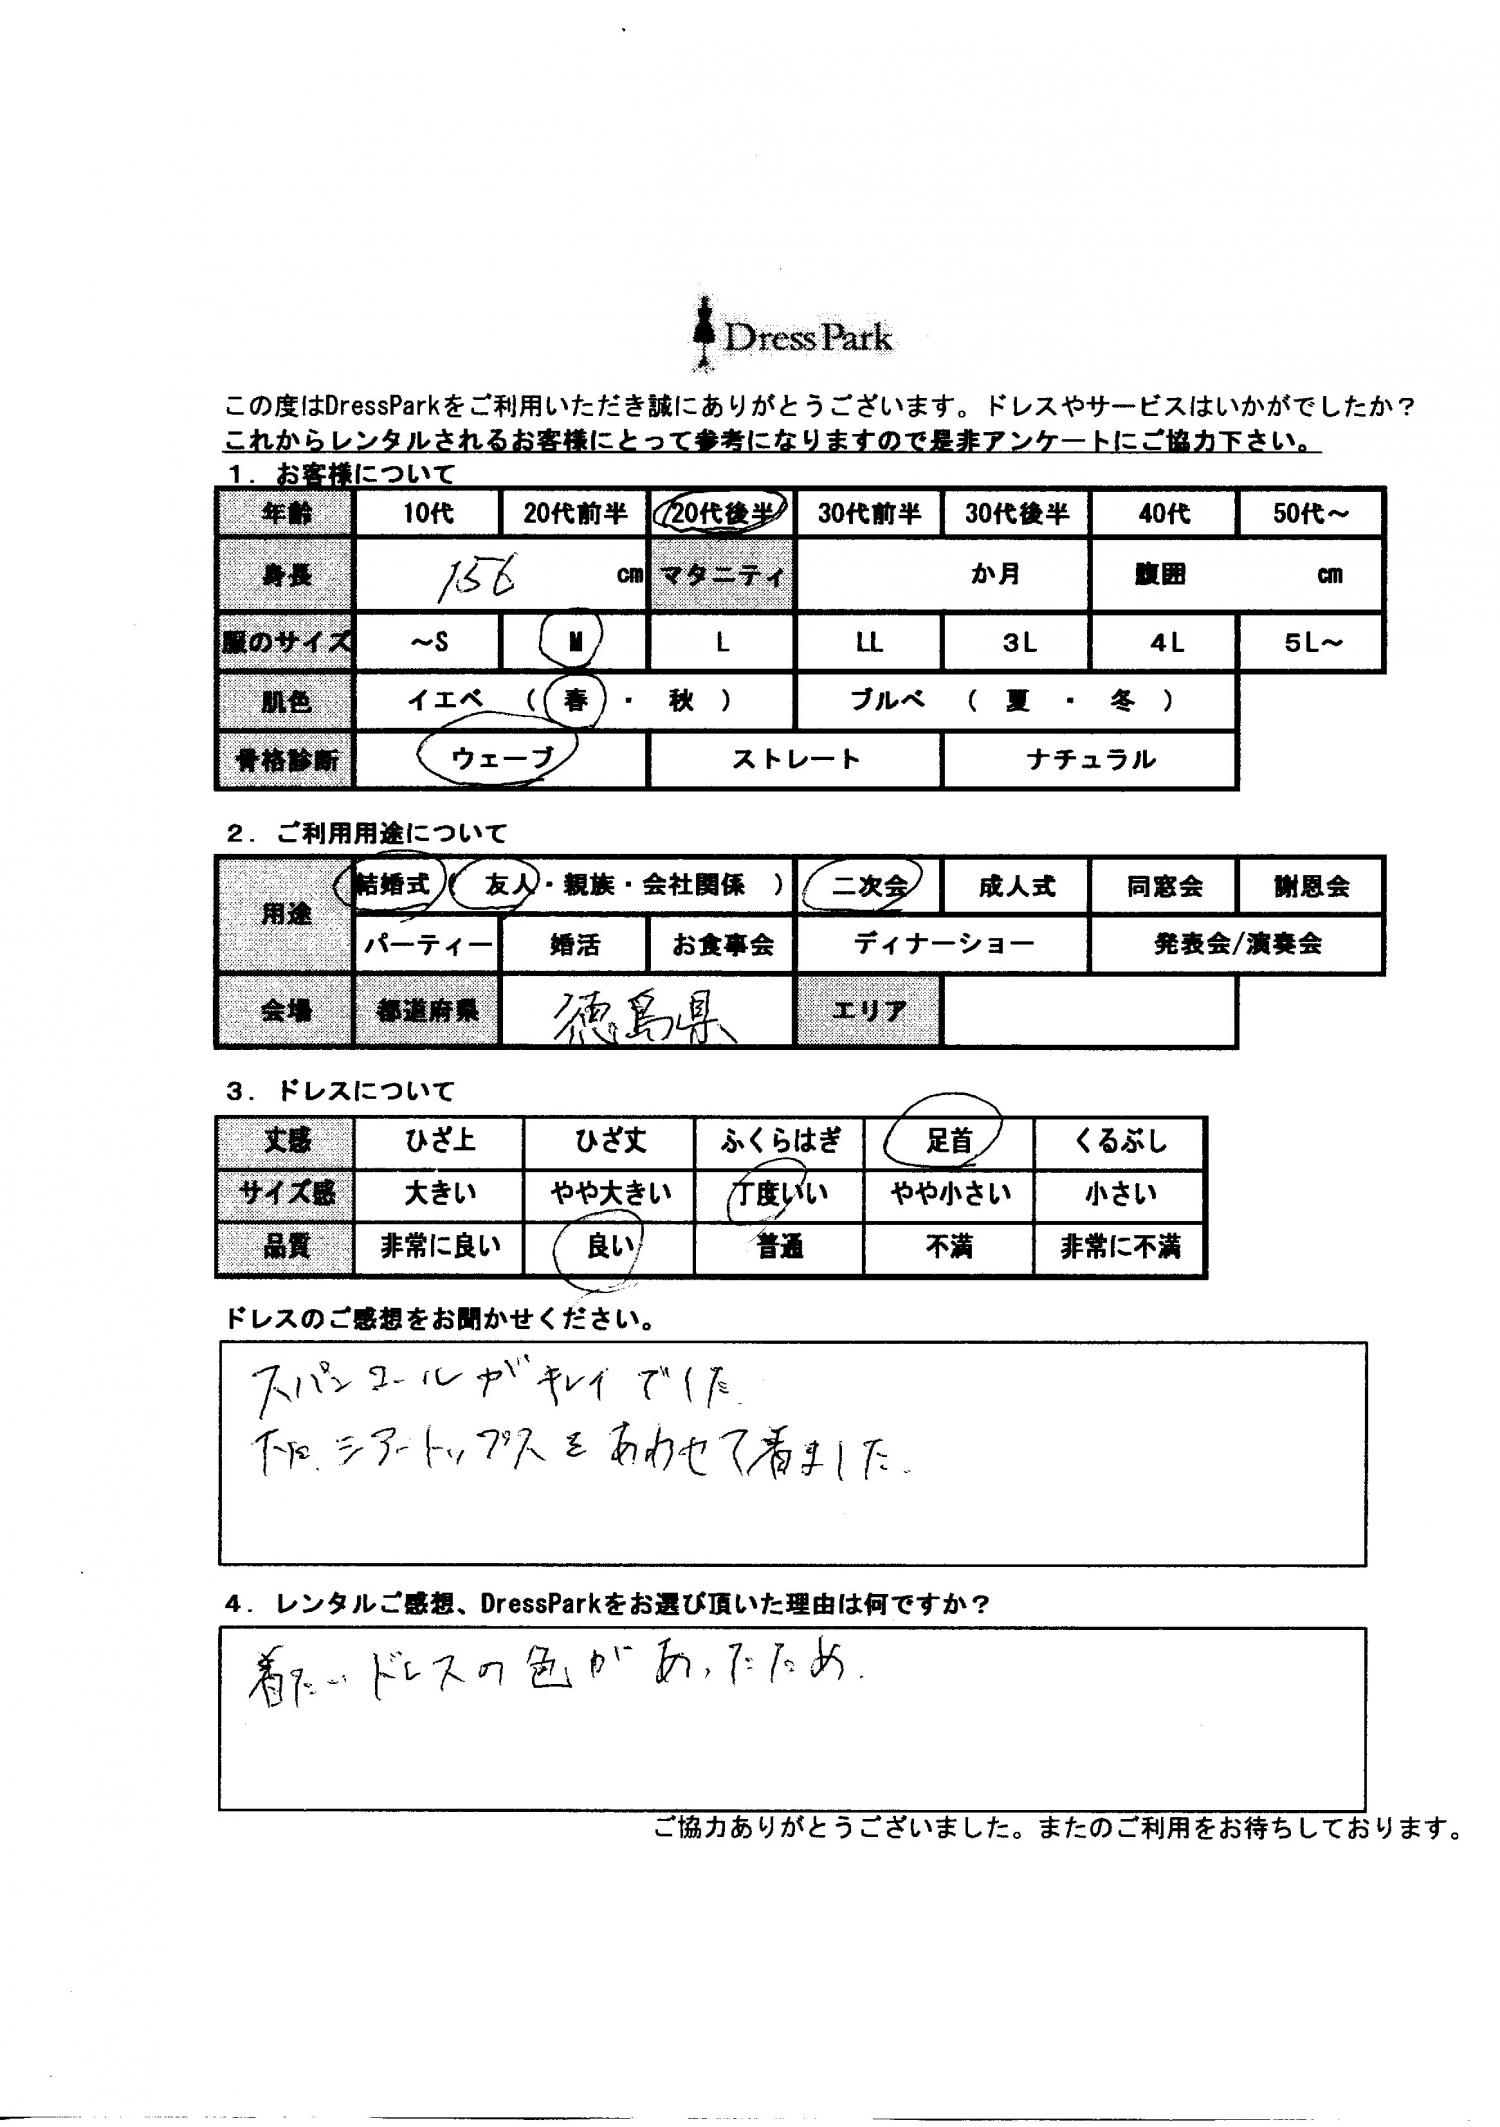 DressPark
この度はDressParkをご利用いただき誠にありがとうございます。ドレスやサービスはいかがでしたか？
これからレンタルされるお客様にとって参考になりますので是非アンケートにご協力下さい。
１．お客様について
年齢 10代 20代前半 20代後半 30代前半 30代後半 40代 50代～
身長 156 cm マタニティ か月 腹囲 cm
服のサイズ ～S M L LL 3L 4L 5L～
肌色 イエベ （ 春 ・ 秋 ） ブルベ （ 夏 ・ 冬 ）
骨格診断 ウェーブ ストレート ナチュラル
２．ご利用用途について
用途 結婚式（ 友人・親族・会社関係 ） 二次会 成人式 同窓会 謝恩会
パーティー 婚活 お食事会 ディナーショー 発表会/演奏会
会場 都道府県 徳島県 エリア
３．ドレスについて
丈感 ひざ上 ひざ丈 ふくらはぎ 足首 くるぶし
サイズ感 大きい やや大きい 丁度いい やや小さい 小さい
品質 非常に良い 良い 普通 不満 非常に不満
ドレスのご感想をお聞かせください。
スパンコールがキレイでした.
シアートップスをあわせて着ました.
４．レンタルご感想、DressParkをお選び頂いた理由は何ですか？
着たいドレスの色があったため.
ご協力ありがとうございました。またのご利用をお待ちしております。